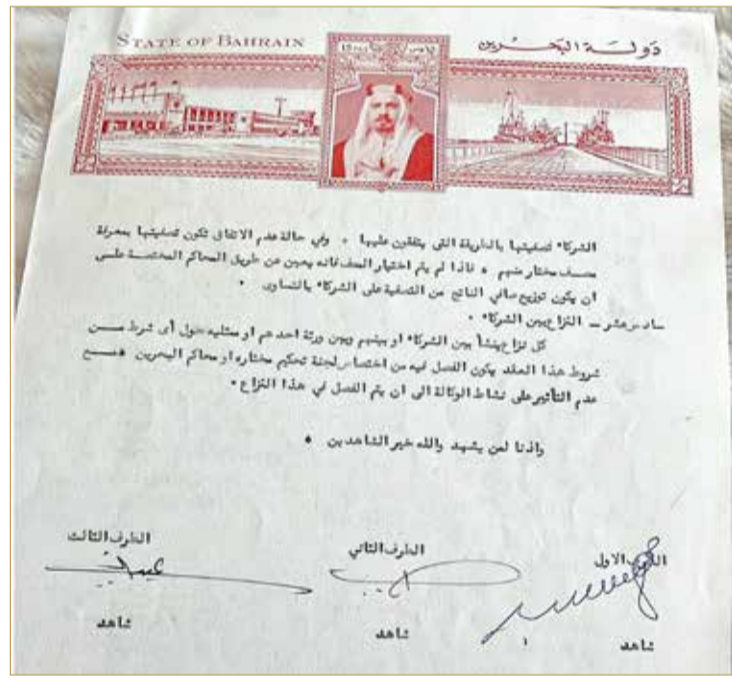 STATE OF BAHRAIN
دولة البحرين
الشركاء تصفيتها بالطريقة التي يتفقون عليها . وفي حالة عدم الاتفاق تكون تصفيتها بمعرفة
مصف مختار منهم . فاذا لم يتم اختيار المصف فانه يعين عن طريق المحاكم المختصة على
ان يكون توزيع صافي الناتج من التصفية على الشركاء بالتساوى .
سادس عشر – النزاع بين الشركاء .
كل نزاع ينشأ بين الشركاء او بينهم وبين ورثة احدهم او ممثليه حول أى شرط من
شروط هذا العقد يكون الفصل فيه من اختصاص لجنة تحكيم مختاره او محاكم البحرين مع
عدم التأثير على نشاط الوكالة الى ان يتم الفصل في هذا النزاع .
واذنا لمن يشهد والله خير الشاهدين .
الطرف الاول
الطرف الثاني
الطرف الثالث
شاهد
شاهد
شاهد